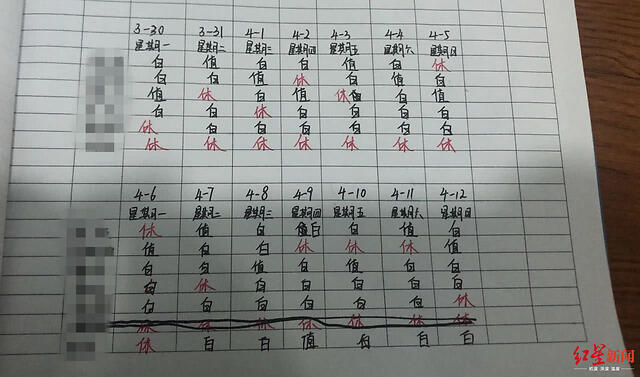 3-30 3-31 4-1 4-2 4-3 4-4 4-5
星期一 星期二 星期三 星期四 星期五 星期六 星期日
白 值 白 白 值 白 休
白 白 值 休 白 值 白
值 休 白 值 休 白 值
白 白 休 白 白 白 白
休 白 白 白 白 白 白
休 休 休 休 休 休 休
4-6 4-7 4-8 4-9 4-10 4-11 4-12
星期一 星期二 星期三 星期四 星期五 星期六 星期日
休 值 白 白 白 值 白
值 白 白 休 休 休 值
白 白 值 白 值 白 白
白 休 白 白 白 白 白
白 白 白 白 白 白 休
休 休 休 休 休 休 休
休 白 白 值 白 白 白
红星新闻